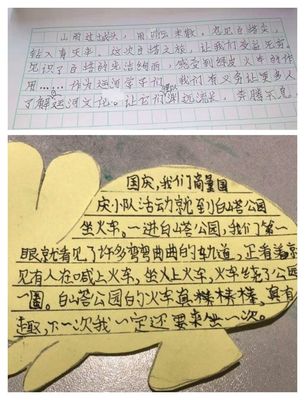 白塔尖
钻入青天来。这次白塔之旅，让我们受益无穷，
见识了白塔的生活绚丽，感受到绿皮火车的作
用……作为运河学子们，我们有义务让更多人
了解运河文化。让它们源远流长，奔腾不息
国庆，我们商量国
庆小队活动就到白塔公园
坐火车。一进白塔公园，我们第一
眼就看见了许多弯弯曲曲的轨道，正看着就
见有人在喊上火车，坐上火车，火车绕了公园
一圈。白塔公园的火车真棒棒棒，真有
趣，下一次我一定还要来坐一次。